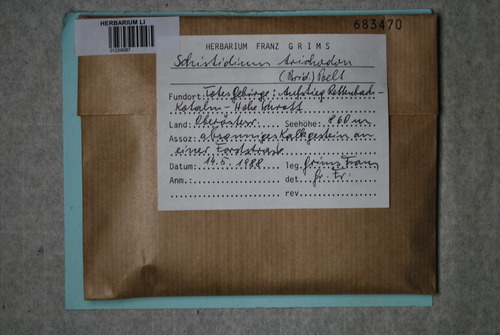 HERBARIUM LI
683470
HERBARIUM FRANZ GRIMS
Schistidium trichodon
(Brid.) Poelt
Fundort: Totes Gebirge: Aufstieg
Hohe
Land: Oberösterr. Seehöhe: 860 m
Assoz: Kalkgestein an
einer Forststraße
Datum: 14.5.1988 leg. Grims Franz
Anm.: det. Gr. Fr.
rev.